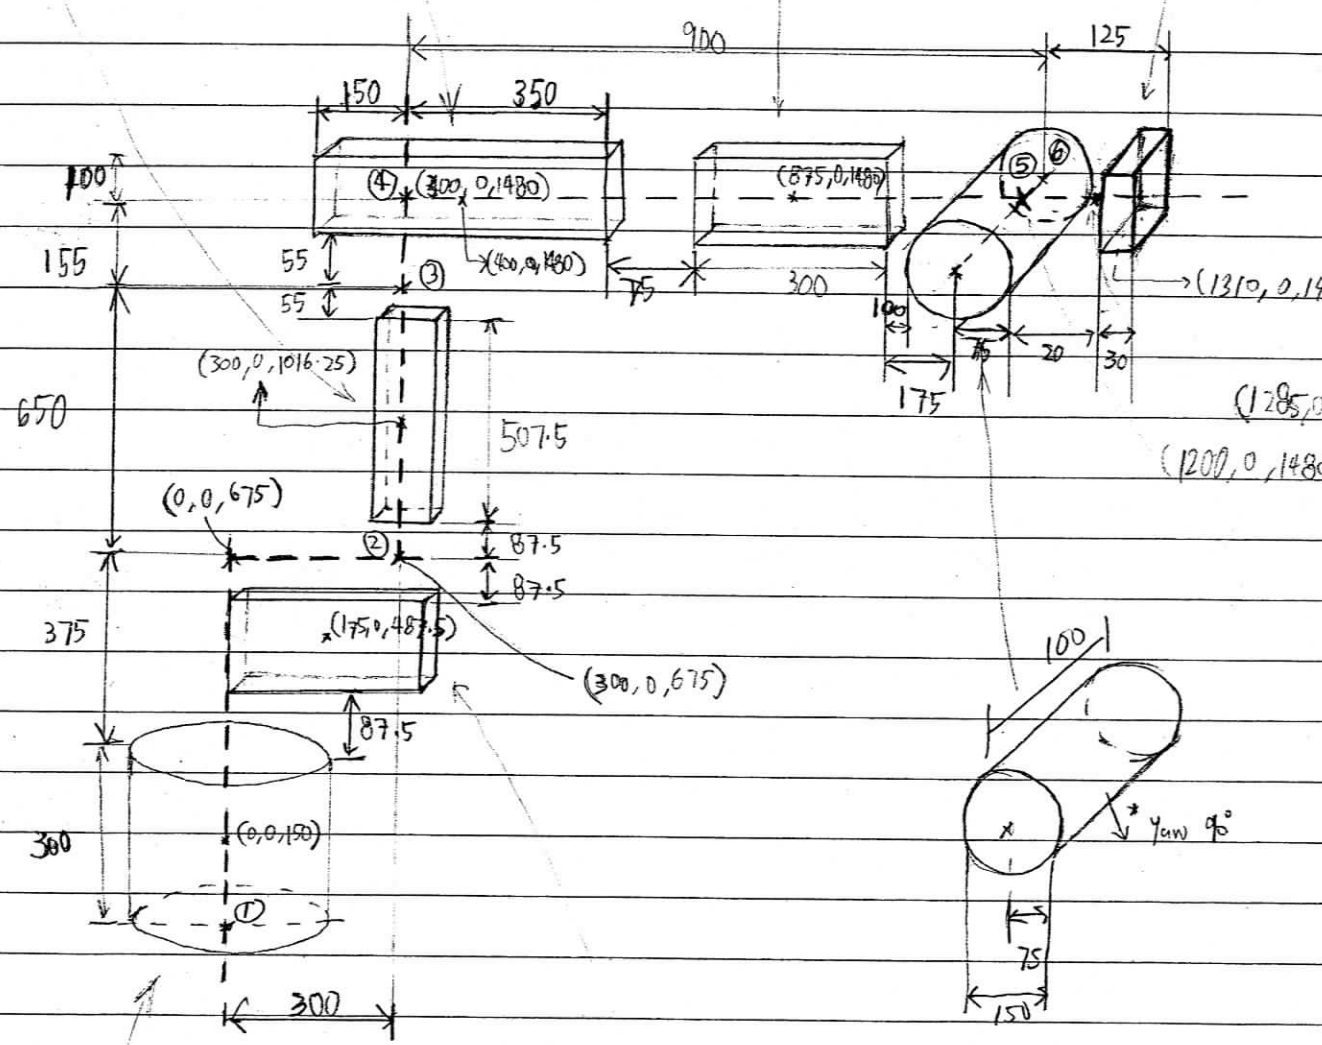 900
125
150 350
100
④ (300, 0, 1480)
(875, 0, 1480)
⑤ ⑥
155
55
(400, 0, 1480)
③
75
300
→(1310, 0, 14
55
100
75
20
30
175
(300, 0, 1016.25)
650
507.5
(1285, 0
(1200, 0, 1480
(0, 0, 675)
②
87.5
87.5
375
(175, 0, 487.5)
(300, 0, 675)
100
87.5
300
(0, 0, 150)
* Yaw 90°
①
75
300
150